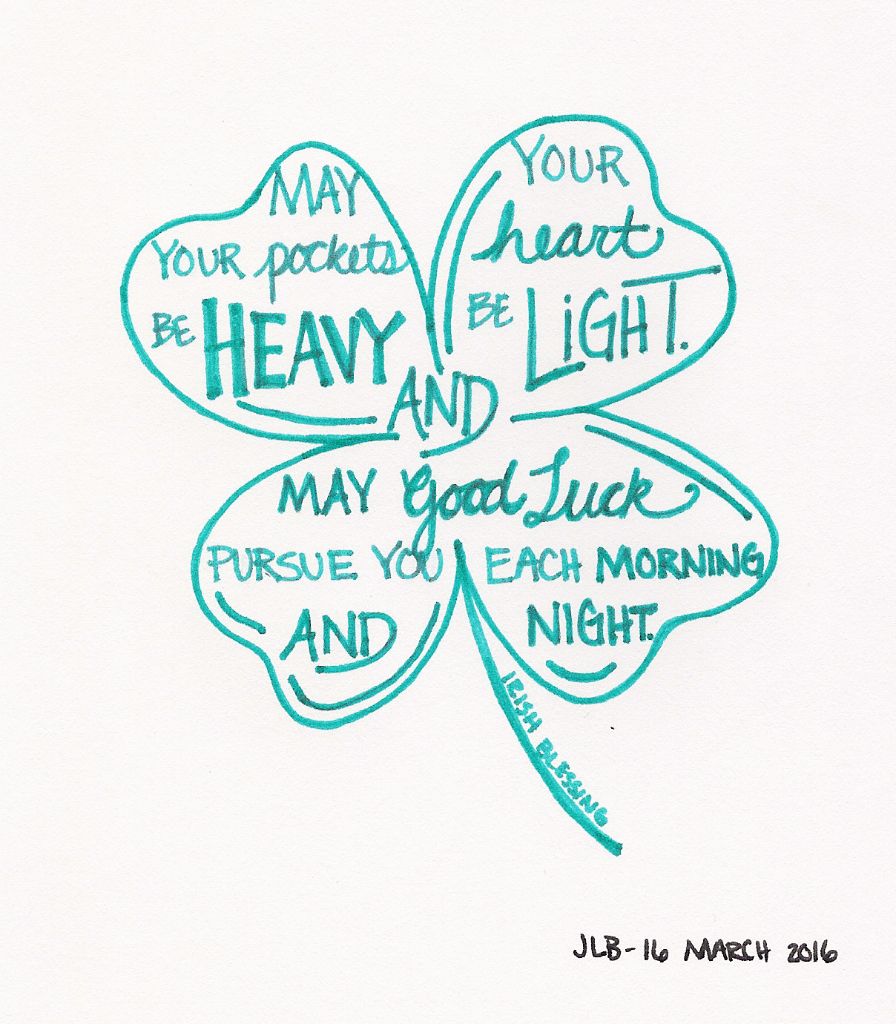 MAY
YOUR pockets
BE HEAVY
AND
YOUR
heart
BE LiGHT.
MAY Good Luck
PURSUE YOU EACH MORNING
AND NIGHT.
IRISH BLESSING
JLB-16 MARCH 2016